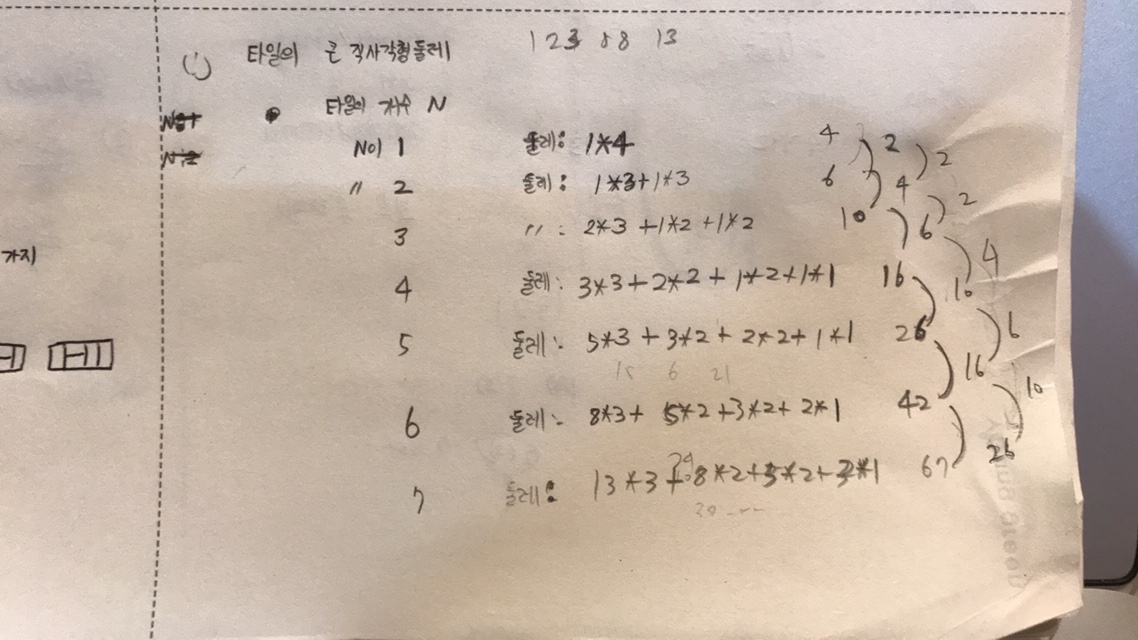 타일의 큰 직사각형둘레 1 2 3 5 8 13
타일의 개수 N
N이 1 둘레: 1*4 4
" 2 둘레: 1*3+1*3 6
3 " : 2*3 +1*2 +1*2 10
4 둘레: 3*3+2*2 + 1*2+1*1 16
5 둘레: 5*3 + 3*2 + 2*2+1*1 26
6 둘레: 8*3+ 5*2+3*2+ 2*1 42
7 둘레: 13*3+8*2+5*2+3*1 67
2 2
4 2
6 4
10 6
16 10
26
가지